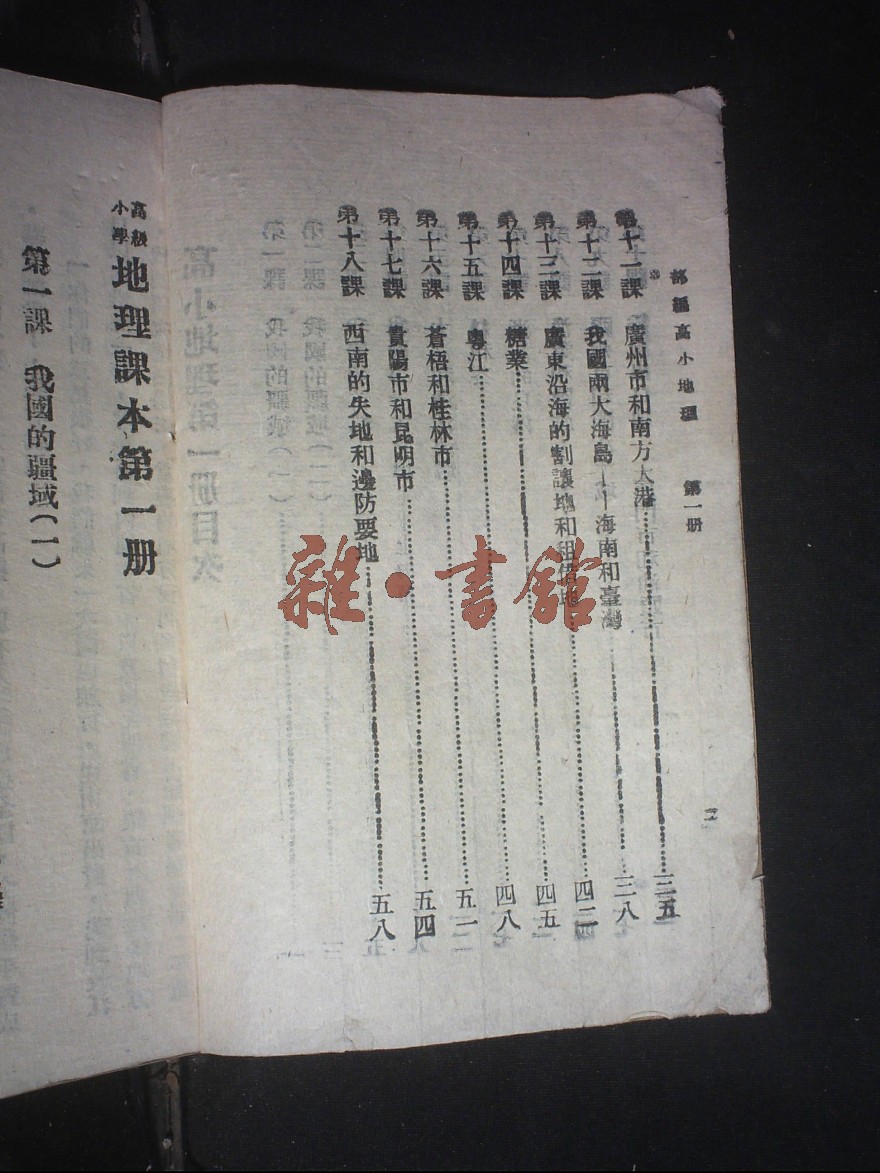 部編高小地理 第一册
二
第十一課 廣州市和南方大港……三五
第十二課 我國兩大海島——海南和臺灣……三八
第十三課 廣東沿海的割讓地和租借地……四二
第十四課 糖業……四五
第十五課 粵江……四八
第十六課 蒼梧和桂林市……五一
第十七課 貴陽市和昆明市……五四
第十八課 西南的失地和邊防要地……五八
高級小學 地理課本第一册
第一課 我國的疆域(一)
雜·書館